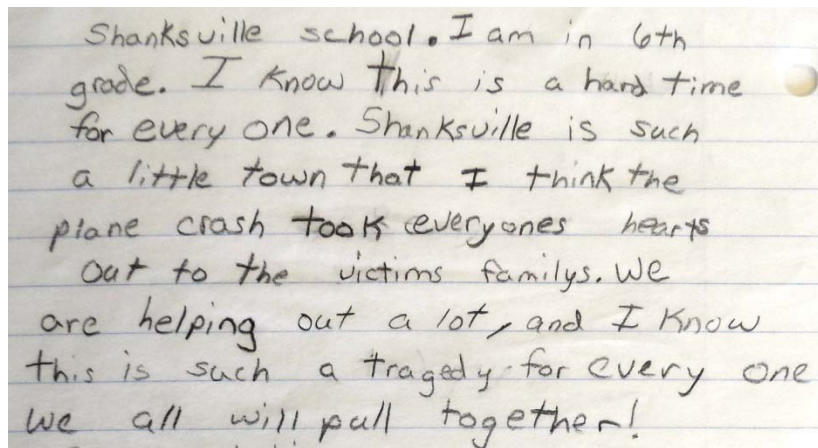 Shanksville school. I am in 6th
grade. I know this is a hard time
for every one. Shanksville is such
a little town that I think the
plane crash took everyones hearts
out to the victims familys. We
are helping out a lot, and I know
this is such a tragedy for every one
we all will pull together!